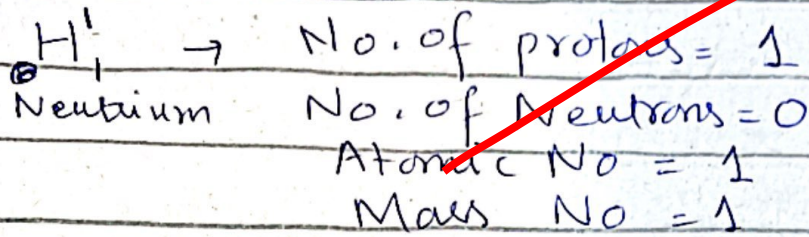 H¹₁ → No. of protons = 1
Neutrium No. of Neutrons = 0
Atomic No = 1
Mass No = 1